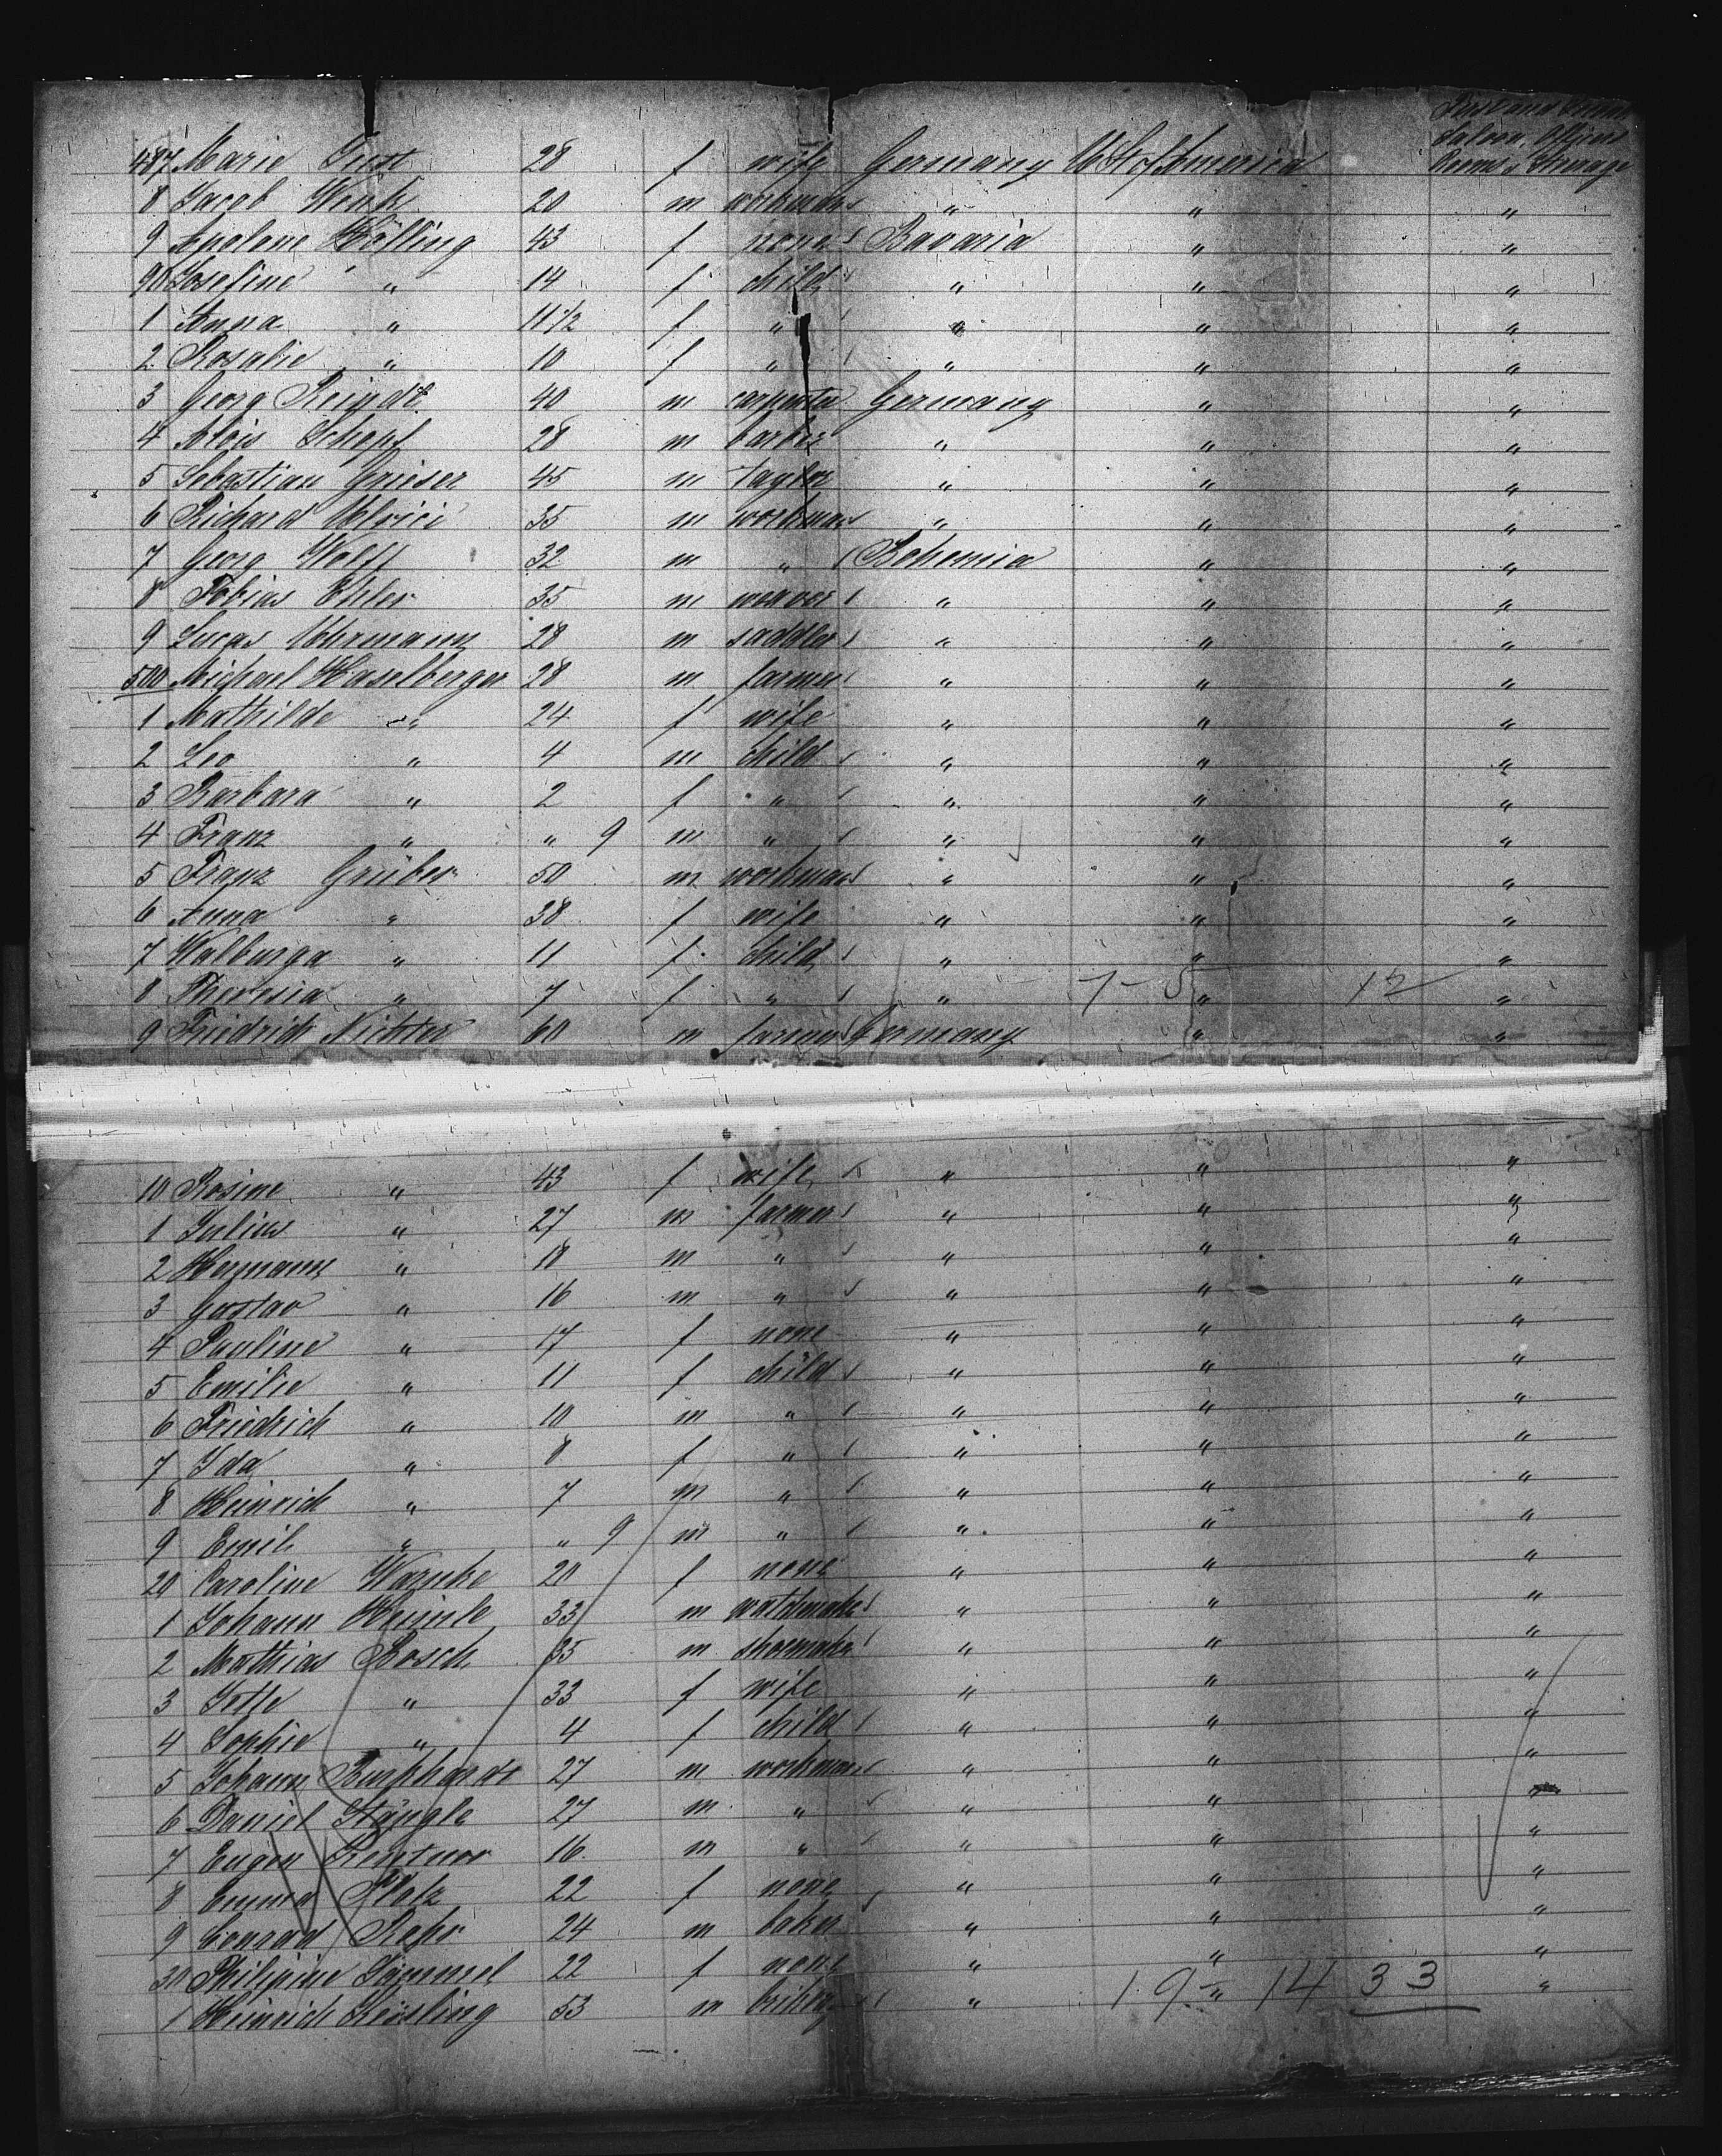 Saloon,
Rooms & Steerage
487 Marie Just 28 f wife Germany U St of America
8 Jacob Wenk 20 m workman " " "
9 Apolone Hölling 43 f none Bavaria " "
90 Josefine " 14 f child " " "
1 Anna " 11 1/2 f " " " "
2 Rosalie " 10 f " " " "
3 Georg Reindt 40 m carpenter Germany " "
4 Alois Schopf 28 m barber " " "
5 Sebastian Grieser 45 m taylor " " "
6 Richard Ulrici 35 m workman " " "
7 Georg Wolff 32 m " Bohemia " "
8 Tobias 35 m weaver " " "
9 Lucas Uhrmann 28 m saddler " " "
500 Michael Haselberger 28 m farmer " " "
1 Mathilde " 24 f wife " " "
2 Leo " 4 m child " " "
3 Barbara " 2 f " " " "
4 Franz " " 9 m " " " "
5 Franz Grüber 50 m workman " " "
6 Anna " 38 f wife " " "
7 Walburga " 11 f child " " "
8 Theresia " 7 f " " " "
9 Friedrich Nichter 60 m farmer Germany " "
10 Rosine " 43 f wife " " "
1 Julius " 27 m farmer " " "
2 Hermann " 18 m " " " "
3 Gustav " 16 m " " " "
4 Pauline " 17 f none " " "
5 Emilie " 11 f child " " "
6 Friedrich " 10 m " " " "
7 Ida " 8 f " " " "
8 Heinrich " 7 m " " " "
9 Emil " " 9 m " " " "
20 Caroline Warnke 20 f none " " "
1 Johann Heimle 33 m watchmaker " " "
2 Mathias Bosch 35 m shoemaker " " "
3 " 33 f wife " " "
4 Sophie " 4 f child " " "
5 Johann Burkhardt 27 m workman " " "
6 Daniel Stängle 27 m " " "
7 Eugen 16 m " " "
8 Emma Plotz 22 f none " " "
9 Conrad 24 m baker " " "
30 Philipine 22 f none " " "
1 Heinrich Kessling 53 m " " 19 14 33 "